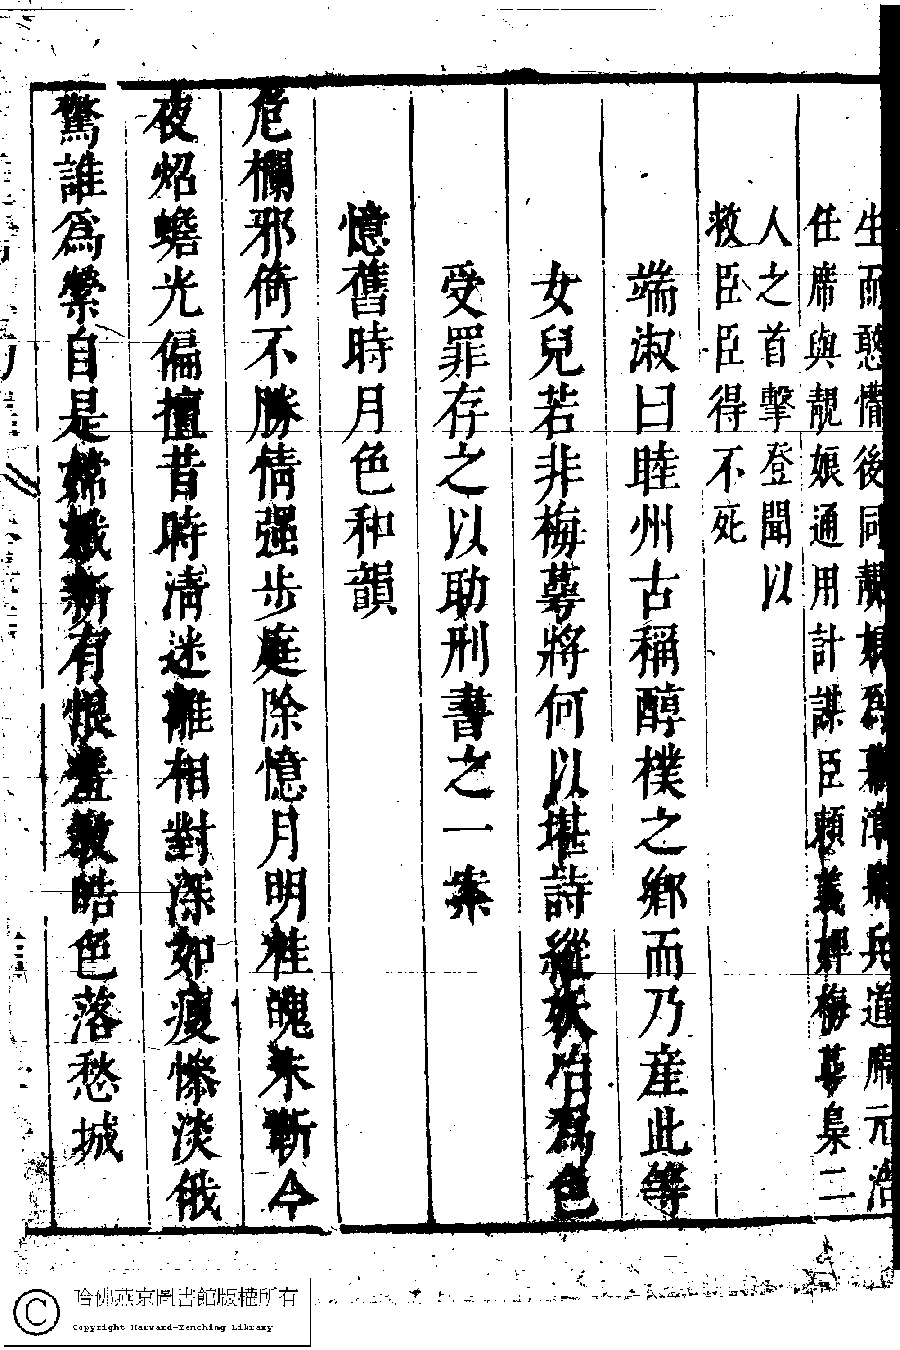 生而憨懵後同靚娘爲漳兵道席元浩
任席與靚娘通用計謀臣賴義婢梅萼梟二
人之首擊登聞以
救臣臣得不死
端淑曰睦州古稱醇樸之鄉而乃産此等
女兒若非梅萼將何以堪詩縱妖冶爲色
受罪存之以助刑書之一案
憶舊時月色和韻
危欄邪倚不勝情强步庭除憶月明桂魄未斬今
夜炤蟾光偏擅昔時清迷離相對深如瘦慘淡俄
驚誰爲縈自是嫦娥新有恨羞敎皓色落愁城
哈佛燕京圖書館版權所有
Copyright Harvard-Yenching Library